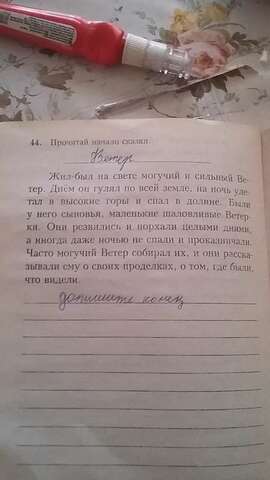 44. Прочитай начало сказки
Ветер
Жил-был на свете могучий и сильный Ве-
тер. Днём он гулял по всей земле, на ночь уле-
тал в высокие горы и спал в долине. Были
у него сыновья, маленькие шаловливые Ветер-
ки. Они резвились и порхали целыми днями,
а иногда даже ночью не спали и проказничали.
Часто могучий Ветер собирал их, и они расска-
зывали ему о своих проделках, о том, где были,
что видели.
допишите конец